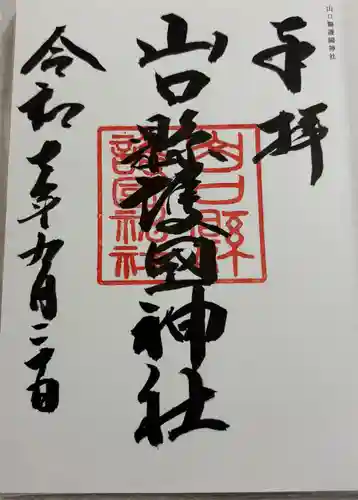 山口縣護國神社
奉拝
山口縣護國神社
令和七年九月二十日
山口縣
護国神社